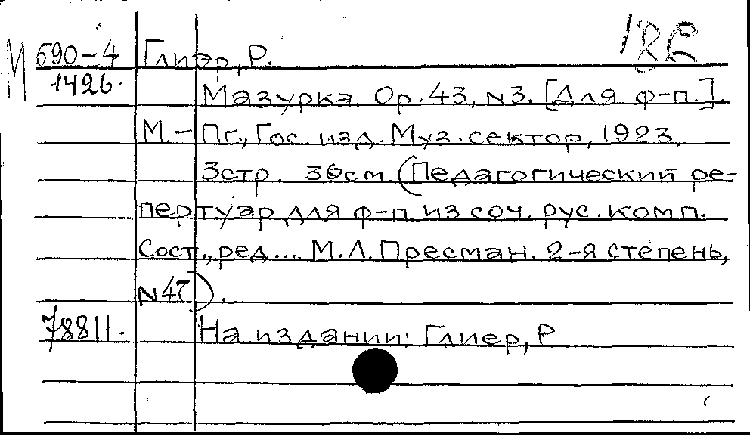 М 690-4 Глиэр, Р.
1426. Мазурка. Ор. 43, №3. [Для ф-п.].
М. - Пг., Гос. изд. Муз. сектор, 1923.
3стр. 36см. (Педагогический ре-
пертуар для ф-п. из соч. рус. комп.
Сост., ред... М.Л. Пресман. 2-я степень,
№47).
78811. На издании: Глиер, Р